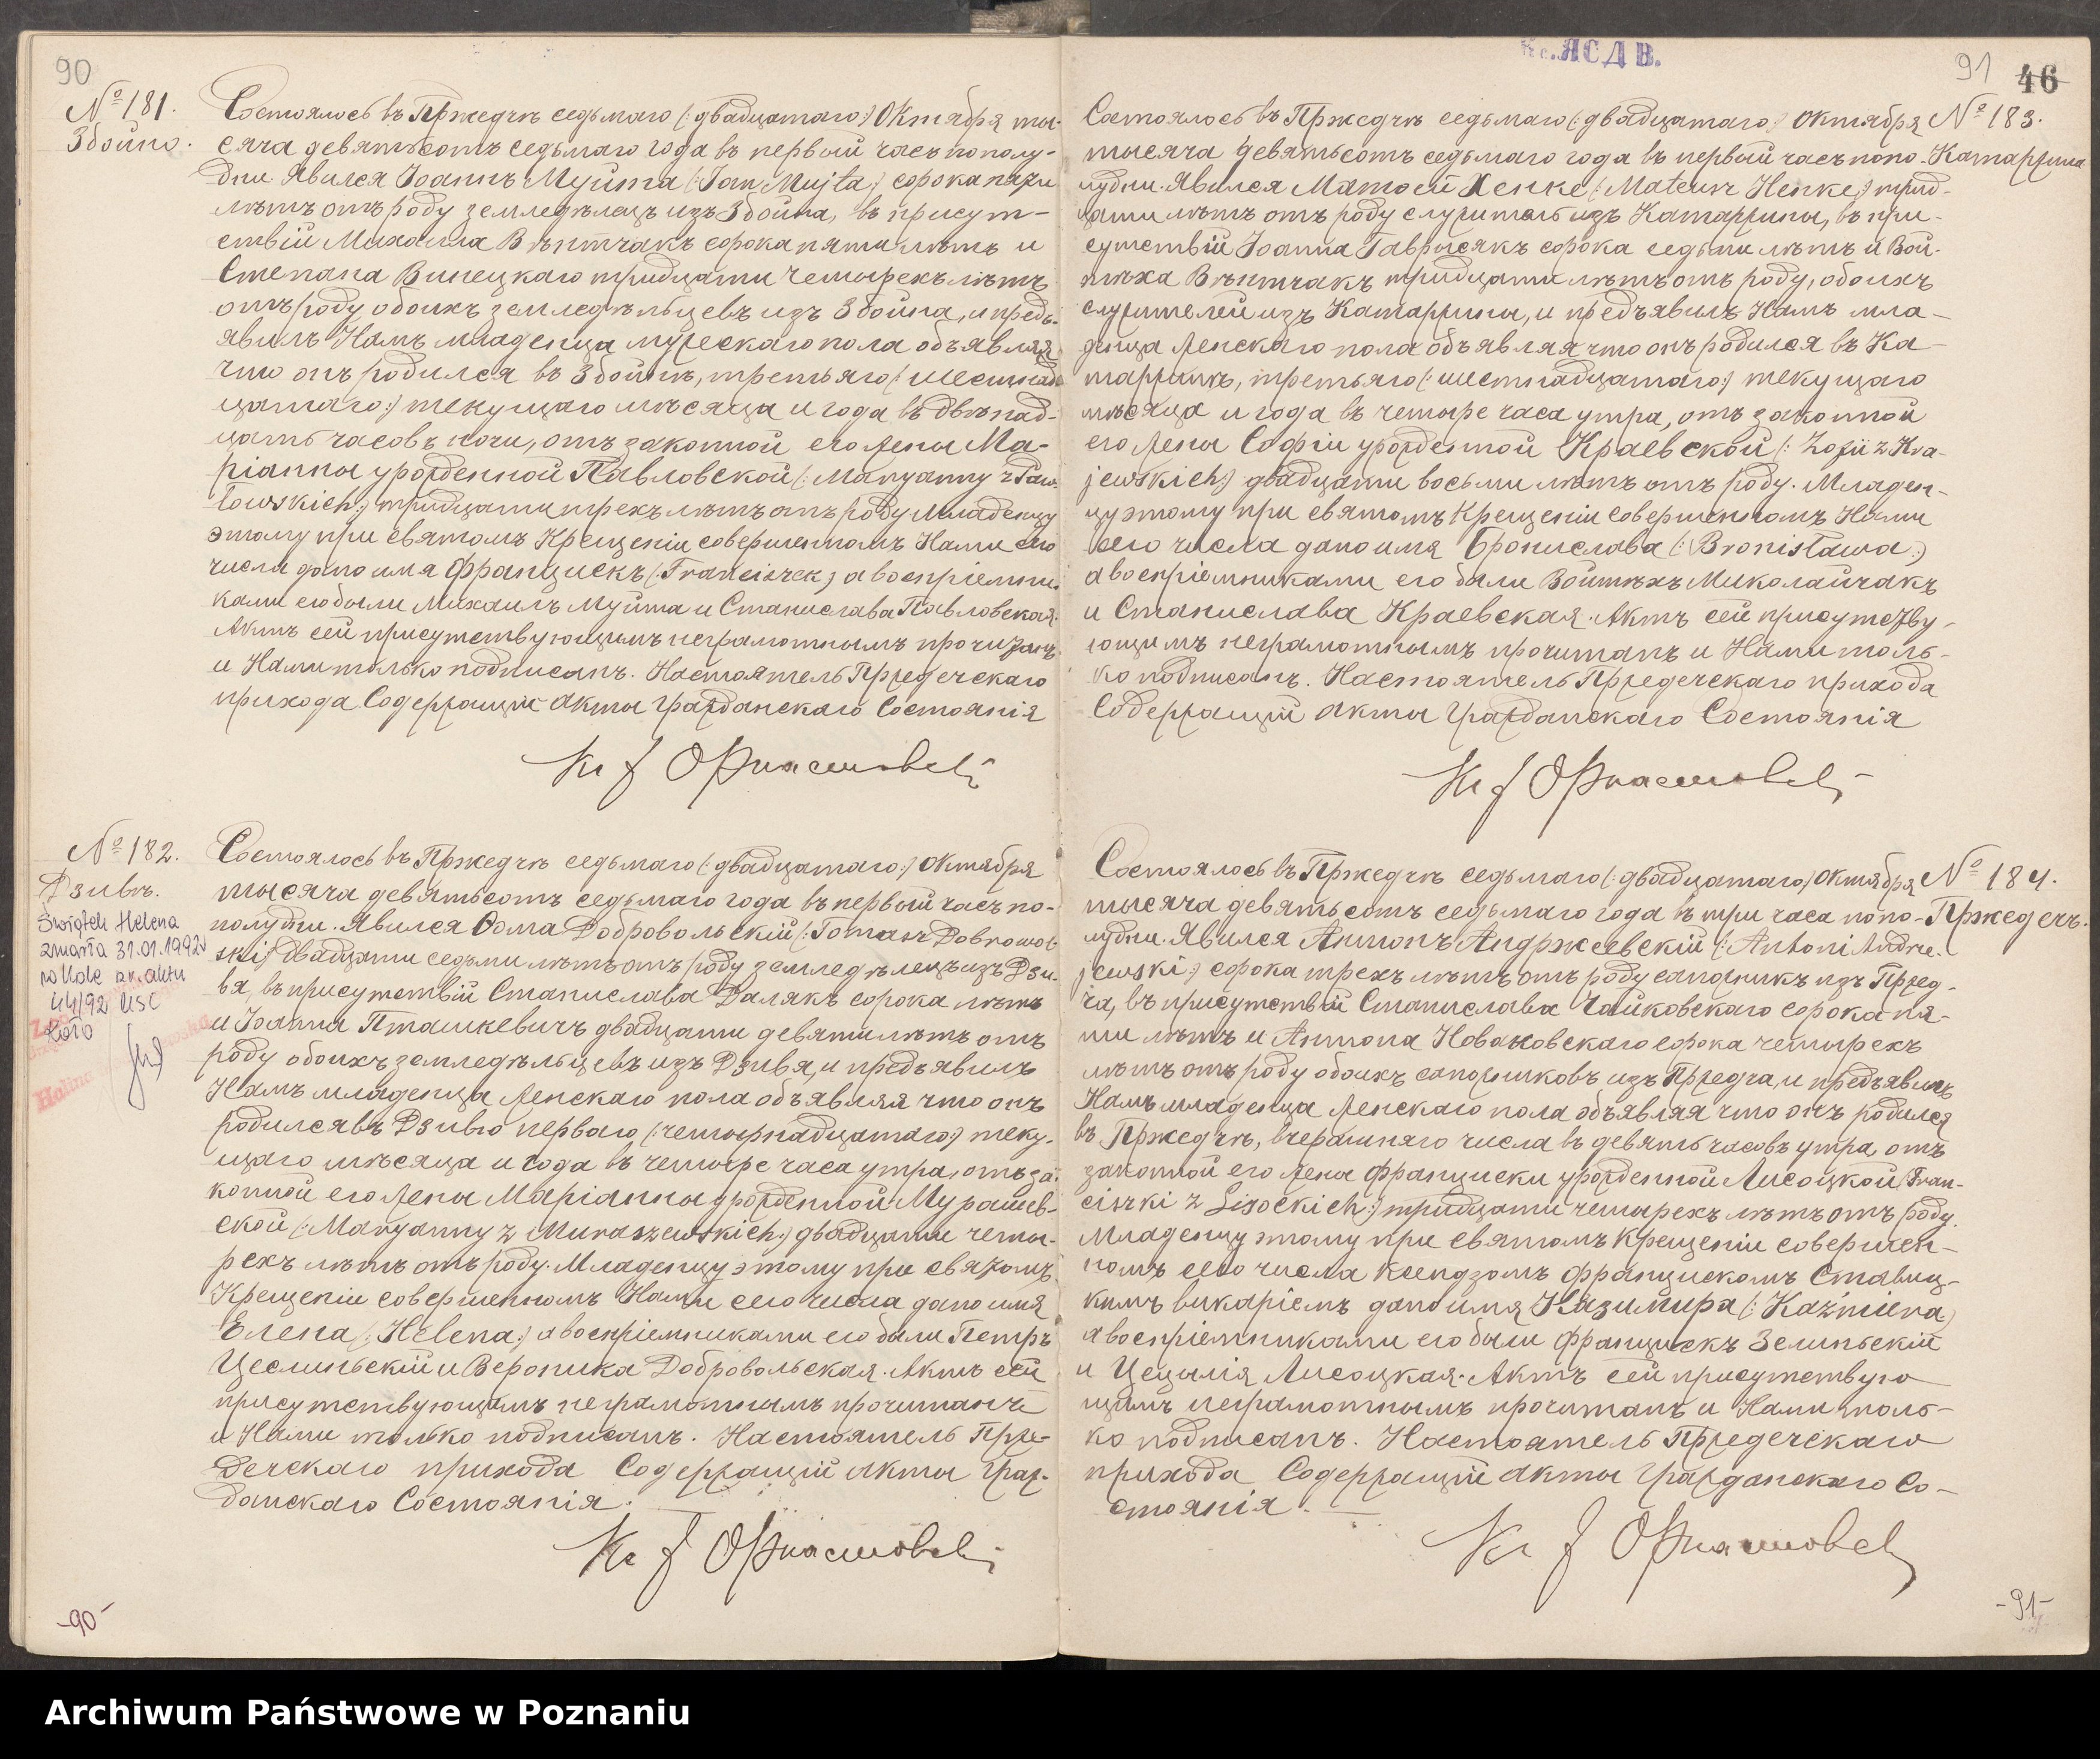 90
№ 181.
Збойно.
Состоялось въ Пржедчѣ седьмаго (:двадцатаго:) Октября ты-
сяча девятьсотъ седьмаго года въ первый часъ пополу-
дни. Явился Іоаннъ Муйта (:Jan Mujta:) сорока пяти
лѣтъ отъ роду земледѣлецъ изъ Збойна, въ присут-
ствіи Михаила Вѣнтчакъ сорока пяти лѣтъ и
Степана Винецкаго тридцати четырехъ лѣтъ
отъ роду обоихъ земледѣльцевъ изъ Збойна, и предъ-
явилъ Намъ младенца мужескаго пола объявляя
что онъ родился въ Збойнѣ, третьяго (:шестнад-
цатаго:) текущаго мѣсяца и года въ двѣнад-
цать часовъ ночи, отъ законной его жены Ма-
ріанны урожденной Павловской (:Maryanny z Paw-
łowskich:) тридцати трехъ лѣтъ отъ роду Младенцу
этому при святомъ Крещеніи совершенномъ Нами сего
числа дано имя Францискъ (:Franciszek:) а воспріемни-
ками его были Михаилъ Муйта и Станислава Павловская.
Актъ сей присутствующимъ неграмотнымъ прочитанъ
и Нами только подписанъ. Настоятель Пржедечскаго
прихода Содержащій Акты Гражданскаго Состоянія
№ 182.
Дзивѣ.
Świątek Helena
zmarła 31.01.1992
w Kole nr. aktu
44/92 USC
Koło
Состоялось въ Пржедчѣ седьмаго (:двадцатаго:) Октября
тысяча девятьсотъ седьмаго года въ первый часъ по-
полудни. Явился Ѳома Добровольскій (:Tomasz Dobrowol-
ski:) двадцати седьми лѣтъ отъ роду земледѣлецъ изъ Дзи-
вя, въ присутствіи Станислава Далякъ сорока лѣтъ
и Іоанна Пташкевичъ двадцати девяти лѣтъ отъ
роду обоихъ земледѣльцевъ изъ Дзивя, и предъявилъ
Намъ младенца женскаго пола объявляя что онъ
родился въ Дзивю перваго (:четырнадцатаго:) теку-
щаго мѣсяца и года въ четыре часа утра, отъ за-
конной его жены Маріанны урожденной Мурашев-
ской (:Maryanny z Muraszewskich:) двадцати четы-
рехъ лѣтъ отъ роду. Младенцу этому при святомъ
Крещеніи совершенномъ Нами сего числа дано имя
Елена (:Helena:) а воспріемниками его были Петръ
Цеслиньскій и Вероника Добровольская. Актъ сей
присутствующимъ неграмотнымъ прочитанъ
и Нами только подписанъ. Настоятель Прже-
дечскаго прихода Содержащій Акты Граж-
данскаго Состоянія.
-90-
91 46
№ 183.
Катаржина
Состоялось въ Пржедчѣ седьмаго (:двадцатаго:) Октября
тысяча девятьсотъ седьмаго года въ первый часъ попо-
лудни. Явился Матѳей Хенке (:Mateusz Henke:) трид-
цати лѣтъ отъ роду служитель изъ Катаржины, въ при-
сутствіи Іоанна Гаврысякъ сорока седьми лѣтъ и Вой-
тѣха Вѣнтчакъ тридцати лѣтъ отъ роду, обоихъ
служителей изъ Катаржины, и предъявилъ Намъ мла-
денца женскаго пола объявляя что онъ родился въ Ка-
таржинѣ, третьяго (:шестнадцатаго:) текущаго
мѣсяца и года въ четыре часа утра, отъ законной
его жены Софіи урожденной Краевской (:Zofii z Kra-
jewskich:) двадцати восьми лѣтъ отъ роду. Младен-
цу этому при святомъ Крещеніи совершенномъ Нами
сего числа дано имя Брониславa (:Bronisława:)
а воспріемниками его были Войтѣхъ Миколайчакъ
и Станислава Краевская. Актъ сей присутству-
ющимъ неграмотнымъ прочитанъ и Нами толь-
ко подписанъ. Настоятель Пржедечскаго прихода
Содержащій Акты Гражданскаго Состоянія
№ 184.
Пржедечъ.
Состоялось въ Пржедчѣ седьмаго (:двадцатаго:) Октября
тысяча девятьсотъ седьмаго года въ три часа попо-
лудни. Явился Антонъ Андржеевскій (:Antoni Andrze-
jewski:) сорока трехъ лѣтъ отъ роду сапожникъ изъ Пржед-
ча, въ присутствіи Станислава Чайковскаго сорока пя-
ти лѣтъ и Антона Новаковскаго сорока четырехъ
лѣтъ отъ роду обоихъ сапожниковъ изъ Пржедча, и предъявилъ
Намъ младенца женскаго пола объявляя что онъ родился
въ Пржедчѣ, вчерашняго числа въ девять часовъ утра, отъ
законной его жены Франциски урожденной Лисоцкой (:Fran-
ciszki z Lisockich:) тридцати четырехъ лѣтъ отъ роду.
Младенцу этому при святомъ Крещеніи совершен-
номъ сего числа Ксендзомъ Францискомъ
викаріемъ дано имя Казимира (:Kaźmiera:)
а воспріемниками его были Францискъ Зелиньскій
и Цецилія Лисоцкая. Актъ сей присутствую
щимъ неграмотнымъ прочитанъ и Нами толь-
ко подписанъ. Настоятель Пржедечскаго
прихода Содержащій Акты Гражданскаго Со-
стоянія.
-91-
Archiwum Państwowe w Poznaniu